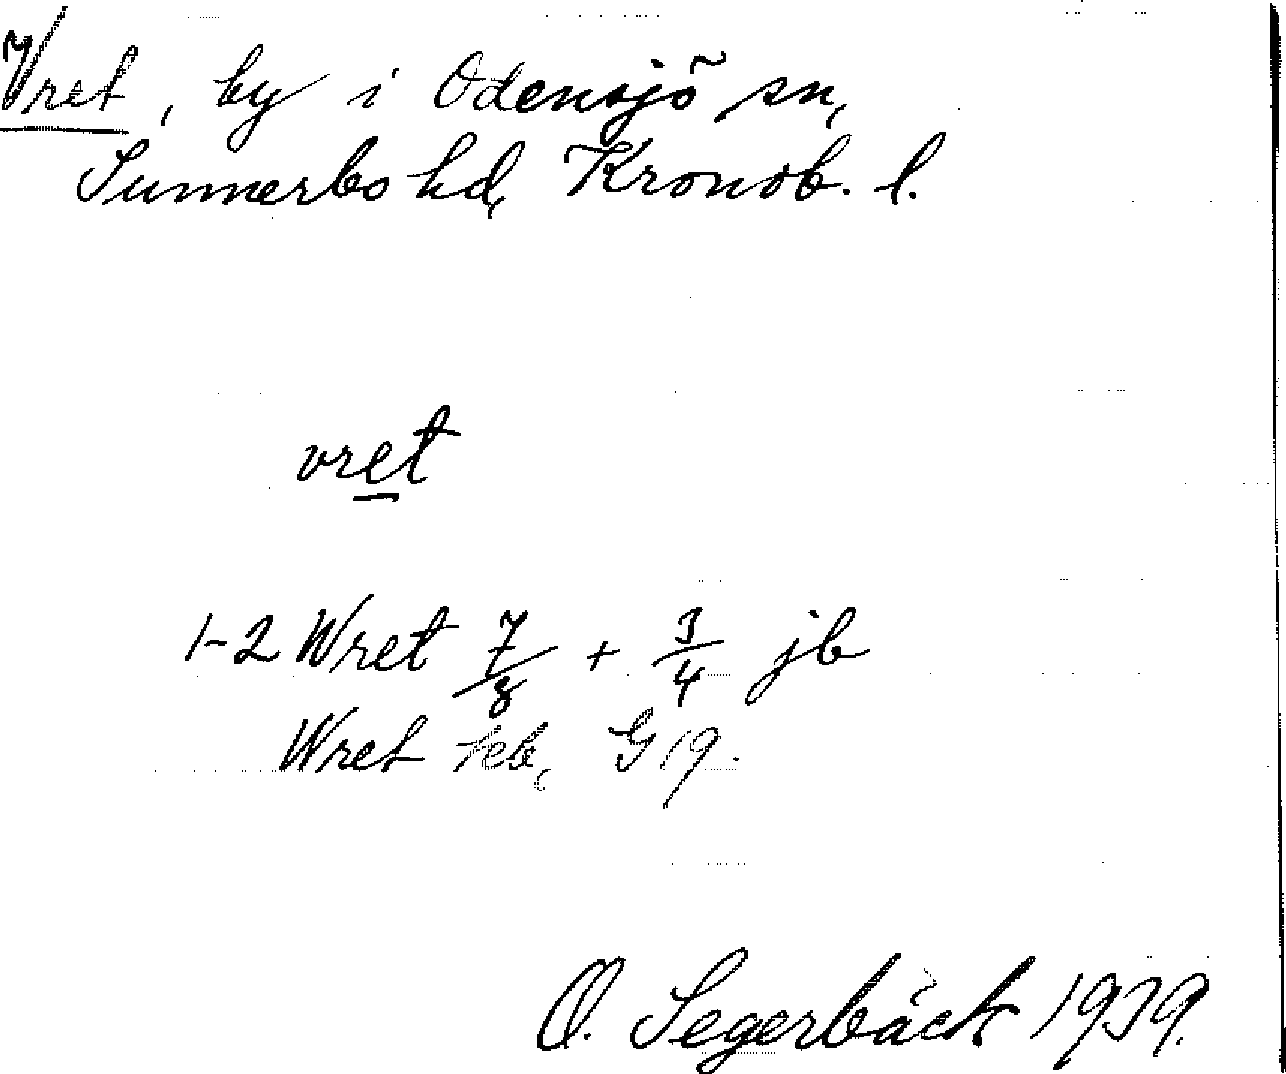 Vret, by i Odensjö sn,
Sunnerbo hd, Kronob. l.
vret
1-2 Wret 7/8 + 3/4 jb
Wret G 19.
O. Segerbäck 1939.